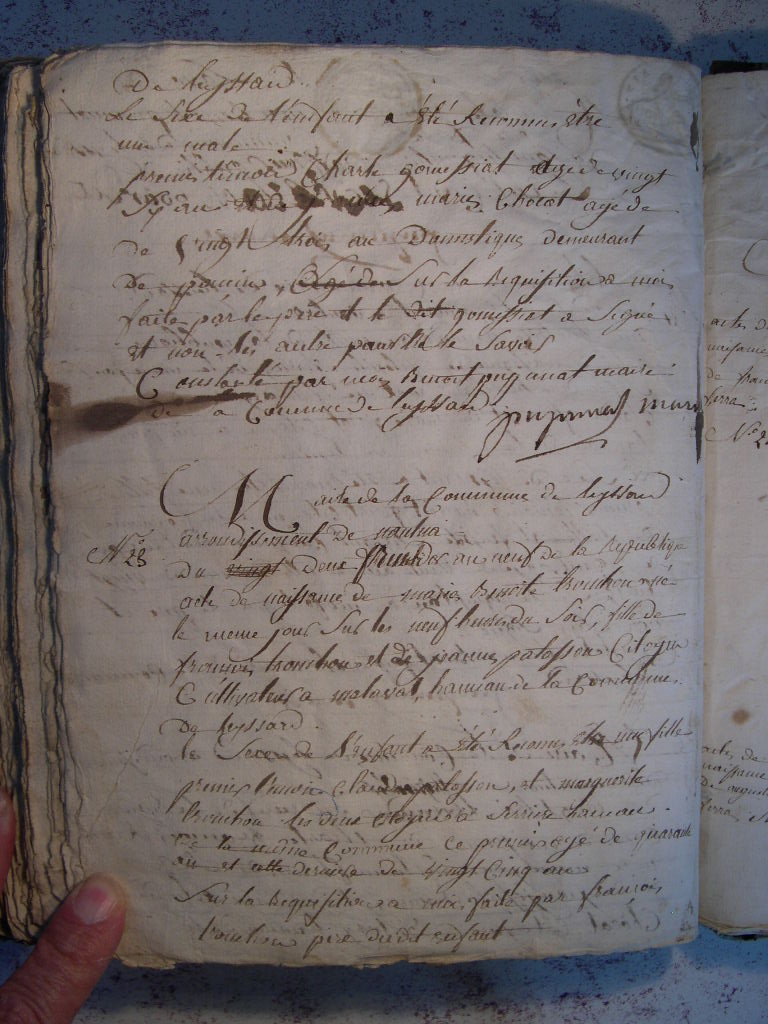 De leyssard
Le sexe de l'enfant a été Reconnu être
un male
premier temoin Charle gomessiat agé de vingt
an marie Chocat agé de
de vingt trois an Domestique demeurant
De sur la Requisition a moi
faite par le pere et le dit gomessiat a signé
et non les autre pour ne le savoir
Constaté par moi Benoit puyanat maire
de la Commune de leyssard puyanat maire
Mairie de la Commune de leyssard
arrondissement de nantua
N.o 28
Du vingt douze an neuf de la Republique
acte de naissance de marie Benoite trouchon née
le meme jour sur les neuf heures du soir, fille de
francois trouchon et de jeanne palosson Citoyen
Cultivateur a solovat, hameau de la Commune
De leyssard.
le sexe de l'enfant a été Reconnu être une fille
premier temoin Claude palosson, et marguerite
trouchon les deux hameau
de la même Commune ce premier agé de quarante
an et cette derniere de vingt Cinq an
Sur la Requisition a moi faite par francois
trouchon pere du dit enfant
acte de
naissance
de fran
N.o 2
acte de
naissance
D august